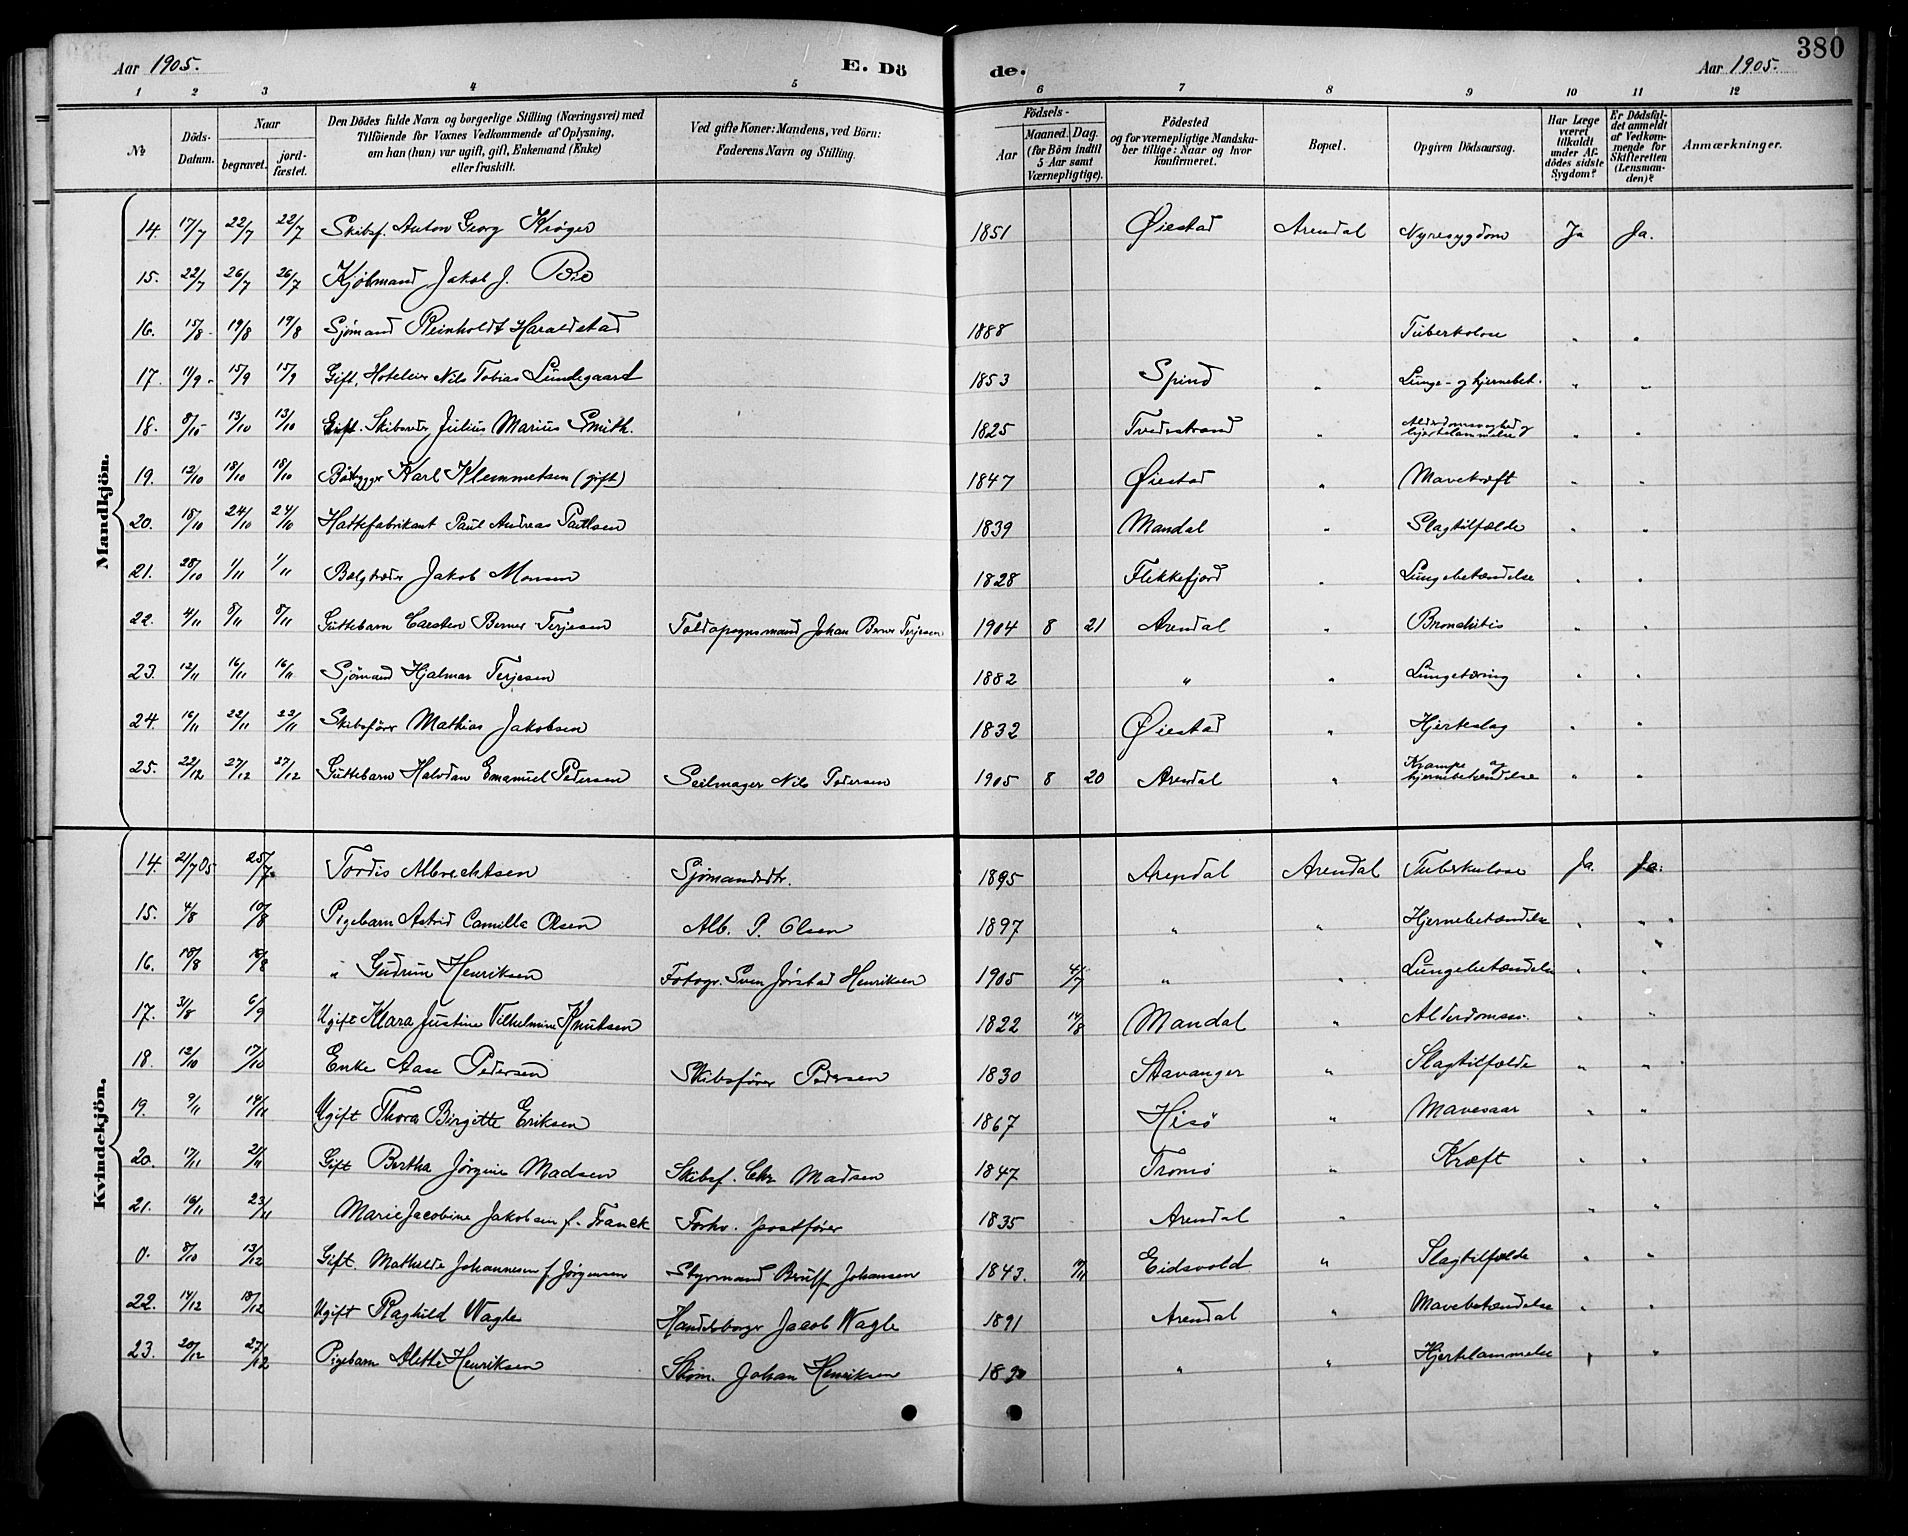 380
Aar 1905. E. Dö de. Aar 1905.
1 2 3 4 5 6 7 8 9 10 11 12
No Döds-Datum. Naar begravet. jord-fæstet. Den Dödes fulde Navn og borgerlige Stilling (Næringsvei) med Tilföiende for Voxnes Vedkommende af Oplysning, om han (hun) var ugift, gift, Enkemand (Enke) eller fraskilt. Ved gifte Koner: Mandens, ved Börn: Faderens Navn og Stilling. Födsels- Aar Maaned. Dag. (for Börn indtil 5 Aar samt Værnepligtige). Födested og for værnepligtige Mandskaber tillige: Naar og hvor konfirmeret. Bopæl. Opgiven Dödsaarsag. Har Læge været tilkaldt under Afdödes sidste Sygdom? Er Dödsfaldet anmeldt af Vedkommende for Skifteretten (Lensmanden)? Anmærkninger.
Mandkjön.
14. 17/7 22/7 22/7 Skibsf. Anton Georg Krøger 1851 Øiestad Arendal Nyresygdom Ja Ja.
15. 22/7 26/7 26/7 Kjøbmand Jakob J.
16. 15/8 19/8 19/8 Sjømand Reinholdt Haraldstad 1888 Tuberkulose " "
17. 11/9 15/9 15/9 Gift, Hoteleier Nils Tobias Lundegaard 1853 Spind " Lunge- og hjernebet. " "
18. 8/10 13/10 13/10 Gift. Skibsreder Julius Marius Smith. 1825 Tvedestrand " Alderdomssvaghed og hjertelammelse " "
19. 12/10 18/10 18/10 Baadbygger Karl Klemmetsen (gift) 1847 Øiestad " Mavekræft " "
20. 18/10 24/10 24/10 Hattefabrikant Paul Andreas Paulsen 1839 Mandal " Slagtilfælde " "
21. 28/10 1/11 1/11 Jakob Monsen 1828 Flekkefjord " Lungebetændelse " "
22. 4/11 8/11 8/11 Guttebarn Carsten Berner Terjesen Toldopsynsmand Johan Berner Terjesen 1904 8 21 Arendal " Bronchitis " "
23. 12/11 16/11 16/11 Sjømand Hjalmar Terjesen 1882 " " Lungetæring " "
24. 16/11 22/11 22/11 Skibsfører Mathias Jakobsen 1832 Øiestad " Hjerteslag " "
25. 22/12 27/12 27/12 Guttebarn Halvdan Emanuel Pedersen Seilmager Nils Pedersen 1905 8 20 Arendal " Krampe og hjernebetændelse " "
Kvindekjön.
14. 21/7 05 25/7 Tordis Albrechtsen Sjømandsdtr. 1895 Arendal Arendal Tuberkulose Ja. Ja.
15. 4/8 10/8 Pigebarn Astrid Camilla Olsen Alb. P. Olsen 1897 " " Hjernebetændelse " " "
16. 18/8 Gudrun Henriksen Fotogr. Sven Jørstad Henriksen 1905 4/7 " " Lungebetændelse " "
17. 31/8 6/9 Ugift Klara Justine Vilhelmine Knutsen 1822 14/8 Mandal " Alderdomss. " "
18. 12/10 17/10 Enke Aase Pedersen Skibsfører Pedersen 1830 Stavanger " Slagtilfælde " "
19. 9/11 14/11 Ugift Thora Birgitte Eriksen 1867 Hisø " Mavesaar " "
20. 17/11 21/11 Gift Bertha Jørgine Madsen Skibsf. Chr Madsen 1847 Tromø " Kræft " "
21. 16/11 23/11 Marie Jacobine Jakobsen f. Franck Forhv. postfører 1835 Arendal " " "
0. 8/10 13/12 Gift. Mathilde Johannesen f Jørgensen Styrmand Johansen 1843. Eidsvold " Slagtilfælde " "
22. 14/12 18/12 Ugift Raghild Wagle Handelsborger Jacob Wagle 1891 Arendal " Mavebetændelse " "
23. 20/12 27/12 Pigebarn Alette Henriksen Johan Henriksen " " Hjertelammelse " "